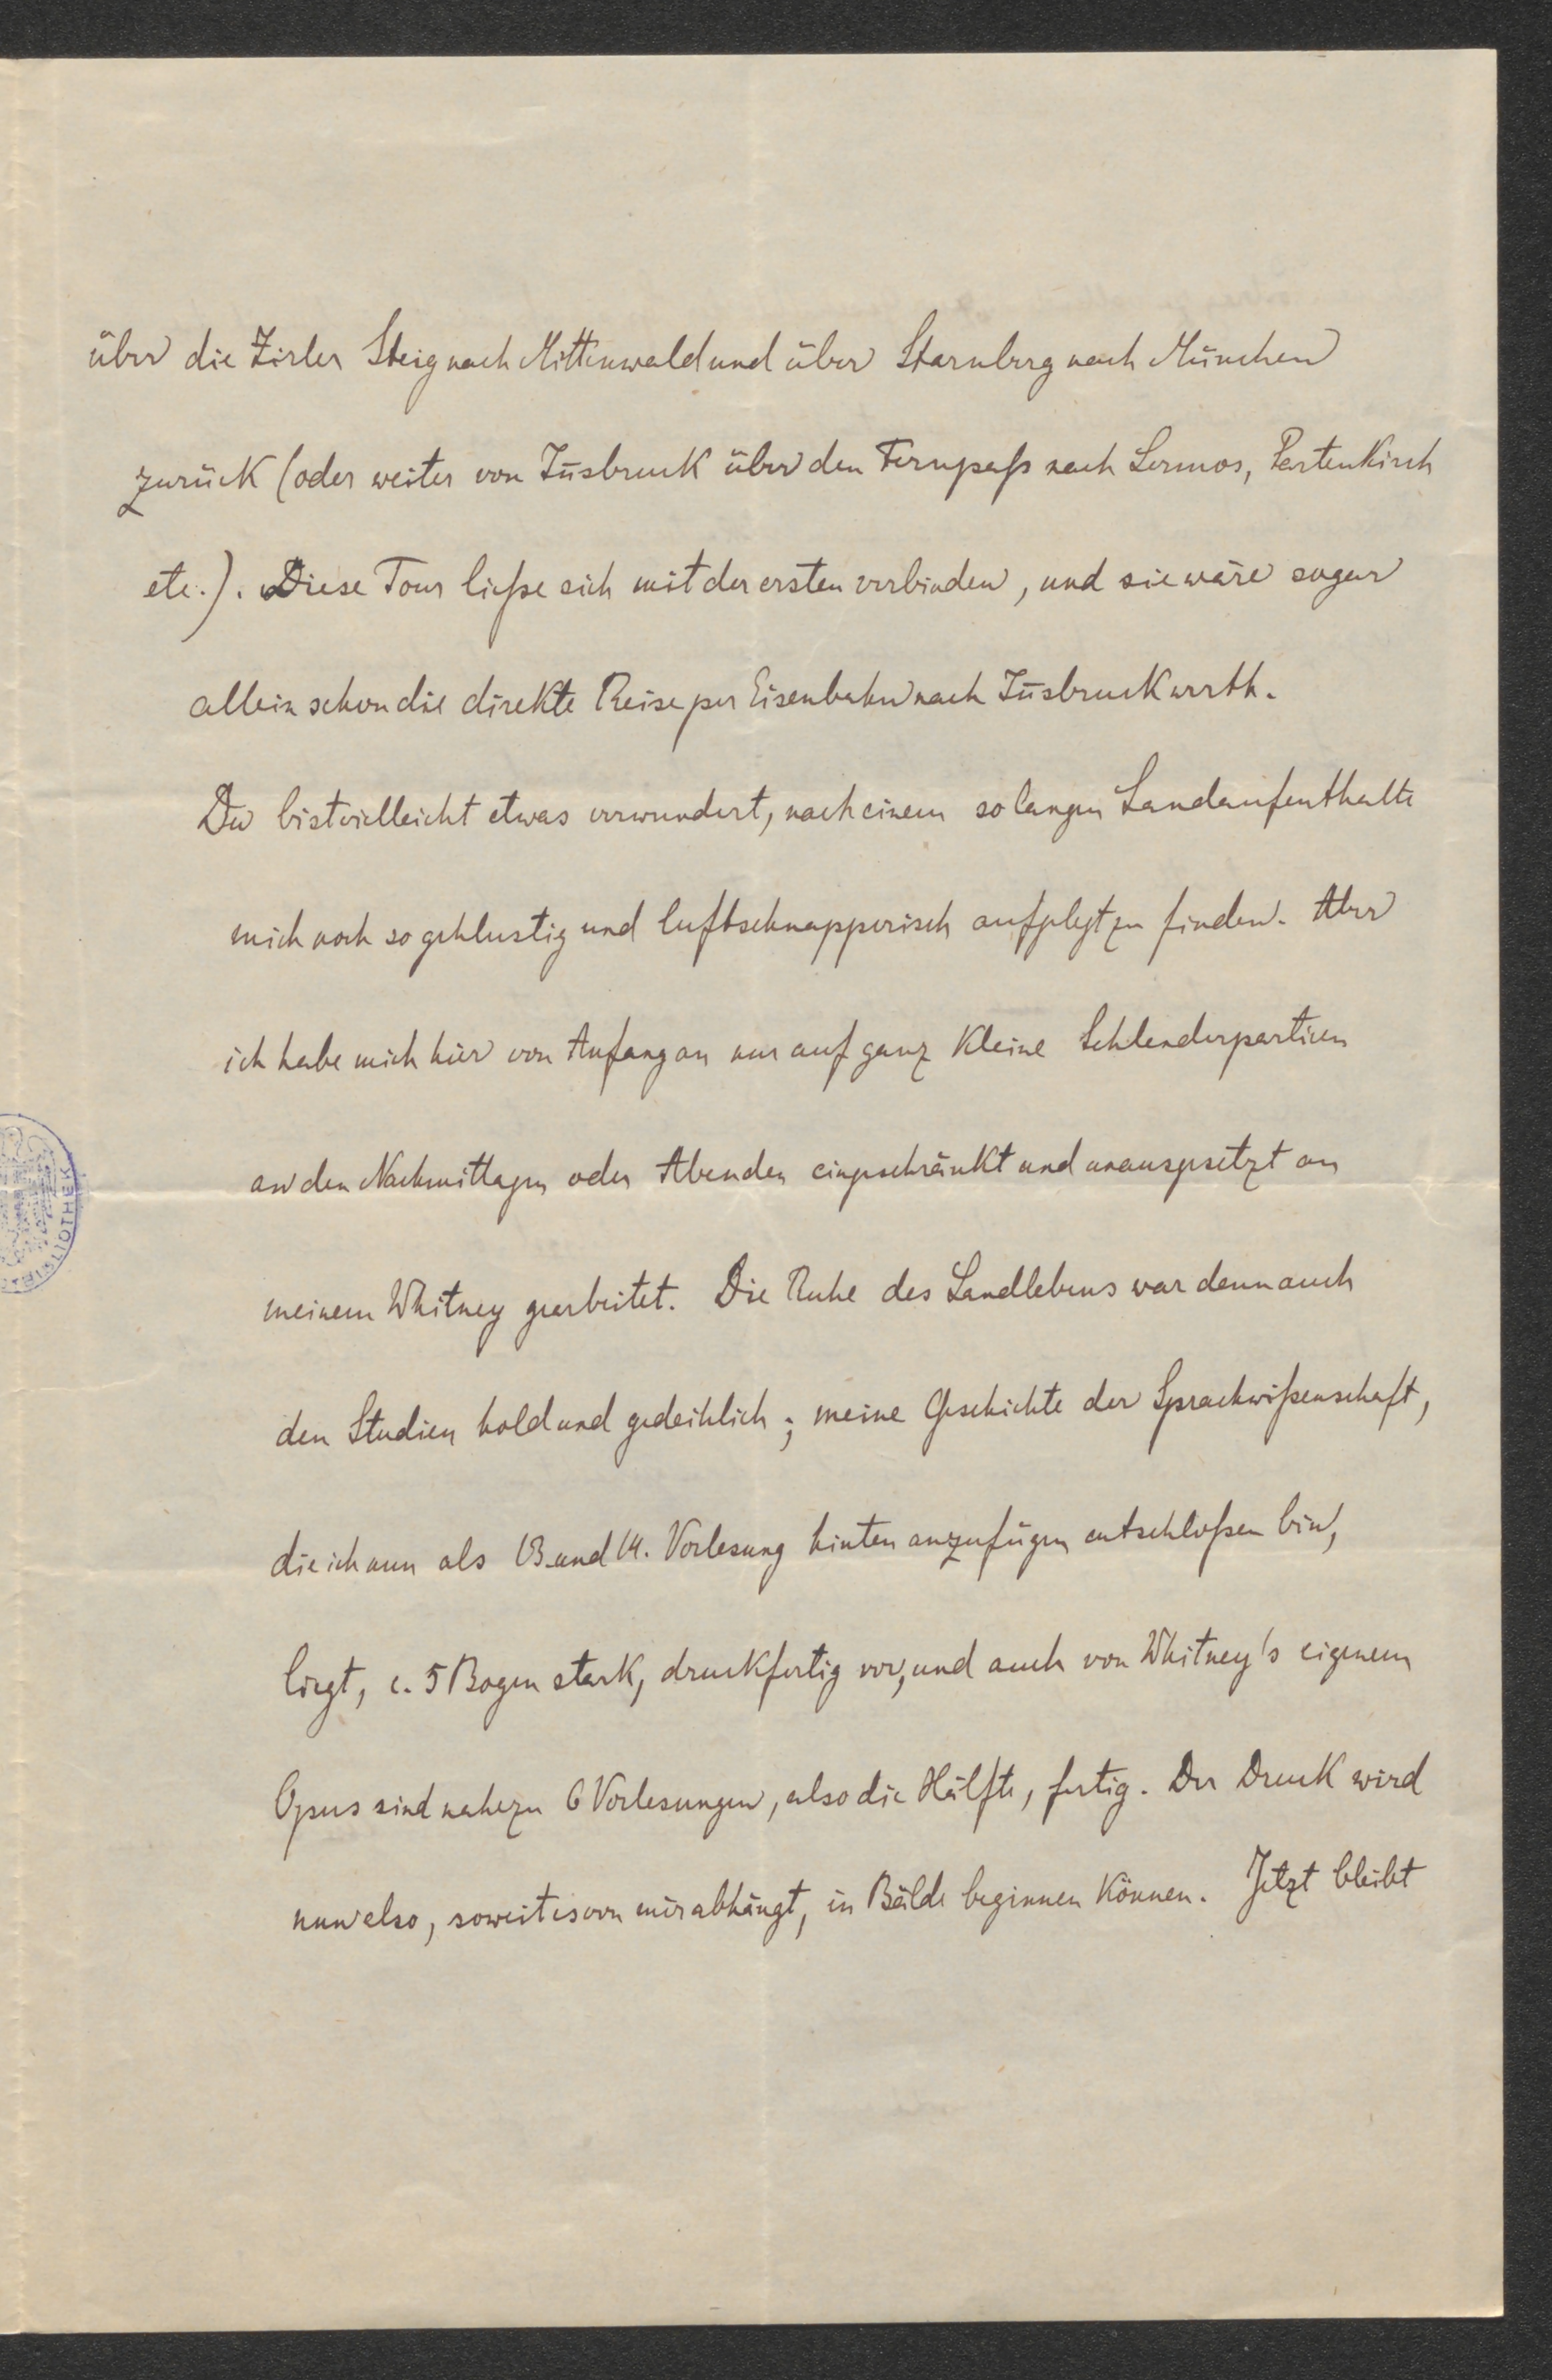 über die Zirler Steig nach Mittenwald und über Starnberg nach München
zurück (oder weiter von Iñsbruck über den Fernpaß nach Lermos, Partenkirch
etc.). Diese Tour ließe sich mit der ersten verbinden, und sie wäre sogar
allein schon die direkte Reise per Eisenbahn nach Iñsbruck werth.
Du bist vielleicht etwas verwundert, nach einem so langen Landaufenthalte
mich noch so gehlustig und luftschnapperisch aufgelegt zu finden. Aber
ich habe mich hier von Anfang an nur auf ganz kleine Schlenderpartien
an den Nachmittagen oder Abenden eingeschränkt und unausgesetzt an
meinem Whitney gearbeitet. Die Ruhe des Landlebens war denn auch
den Studien hold und gedeihlich; meine Geschichte der Sprachwißenschaft,
die ich nun als 13. und 14. Vorlesung hinten anzufügen entschloßen bin,
liegt, c. 5 Bogen stark, druckfertig vor, und auch von Whitney's eigenem
Opus sind nahezu 6 Vorlesungen, also die Hälfte, fertig. Der Druck wird
nun also, soweit es von mir abhängt, in Bälde beginnen können. Jetzt bleibt
BIBLIOTHEK